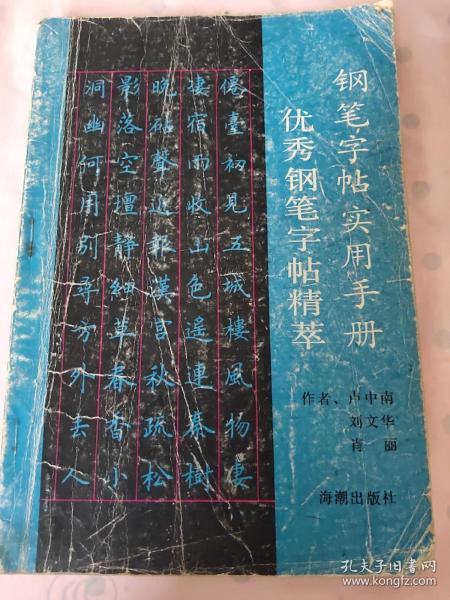 钢笔字帖实用手册
优秀钢笔字帖精萃
作者、卢中南
刘文华
肖丽
海潮出版社
僊臺初見五城樓風物淒
淒宿雨收山色遙連秦樹
晚砧聲近報漢宮秋疏松
影落空壇靜細草春香小
洞幽何用別尋方外去人
孔夫子旧书网
www.kongfz.com